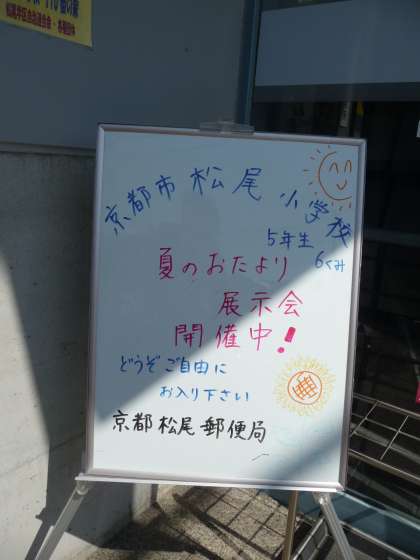 京都市松尾小学校
5年生 6くみ
夏のおたより
展示会
開催中!
どうぞご自由に
お入り下さい
京都松尾郵便局